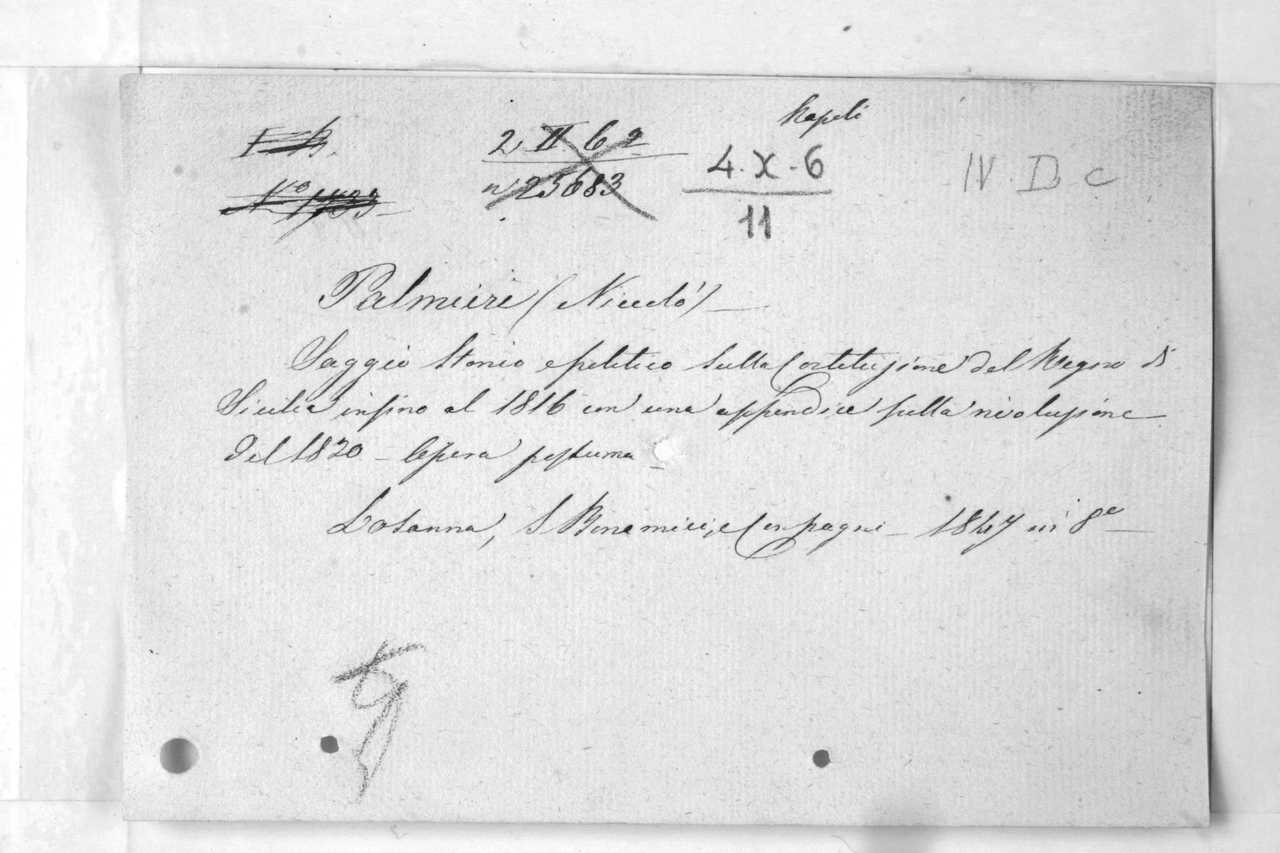 Napoli
2 II 6 2
n° 25683
4. X. 6
11
IV. D. c
Palmieri (Niccolò) —
Saggio Storico e politico sulla Costituzione del Regno di
Sicilia infino al 1816 con una appendice sulla rivoluzione
del 1820 — Opera postuma —
Losanna, S. Bonamici, e Compagni — 1847 in 8°